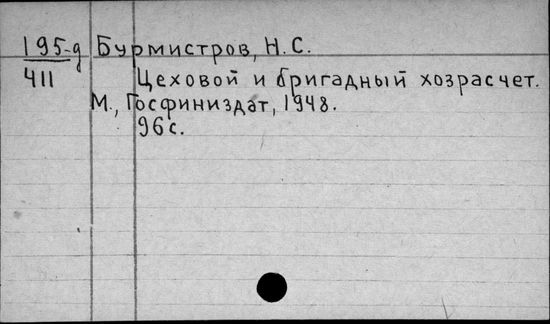 195-д Бурмистров, Н.С.
411 Цеховой и бригадный хозрасчет.
М., Госфиниздат, 1948.
96с.